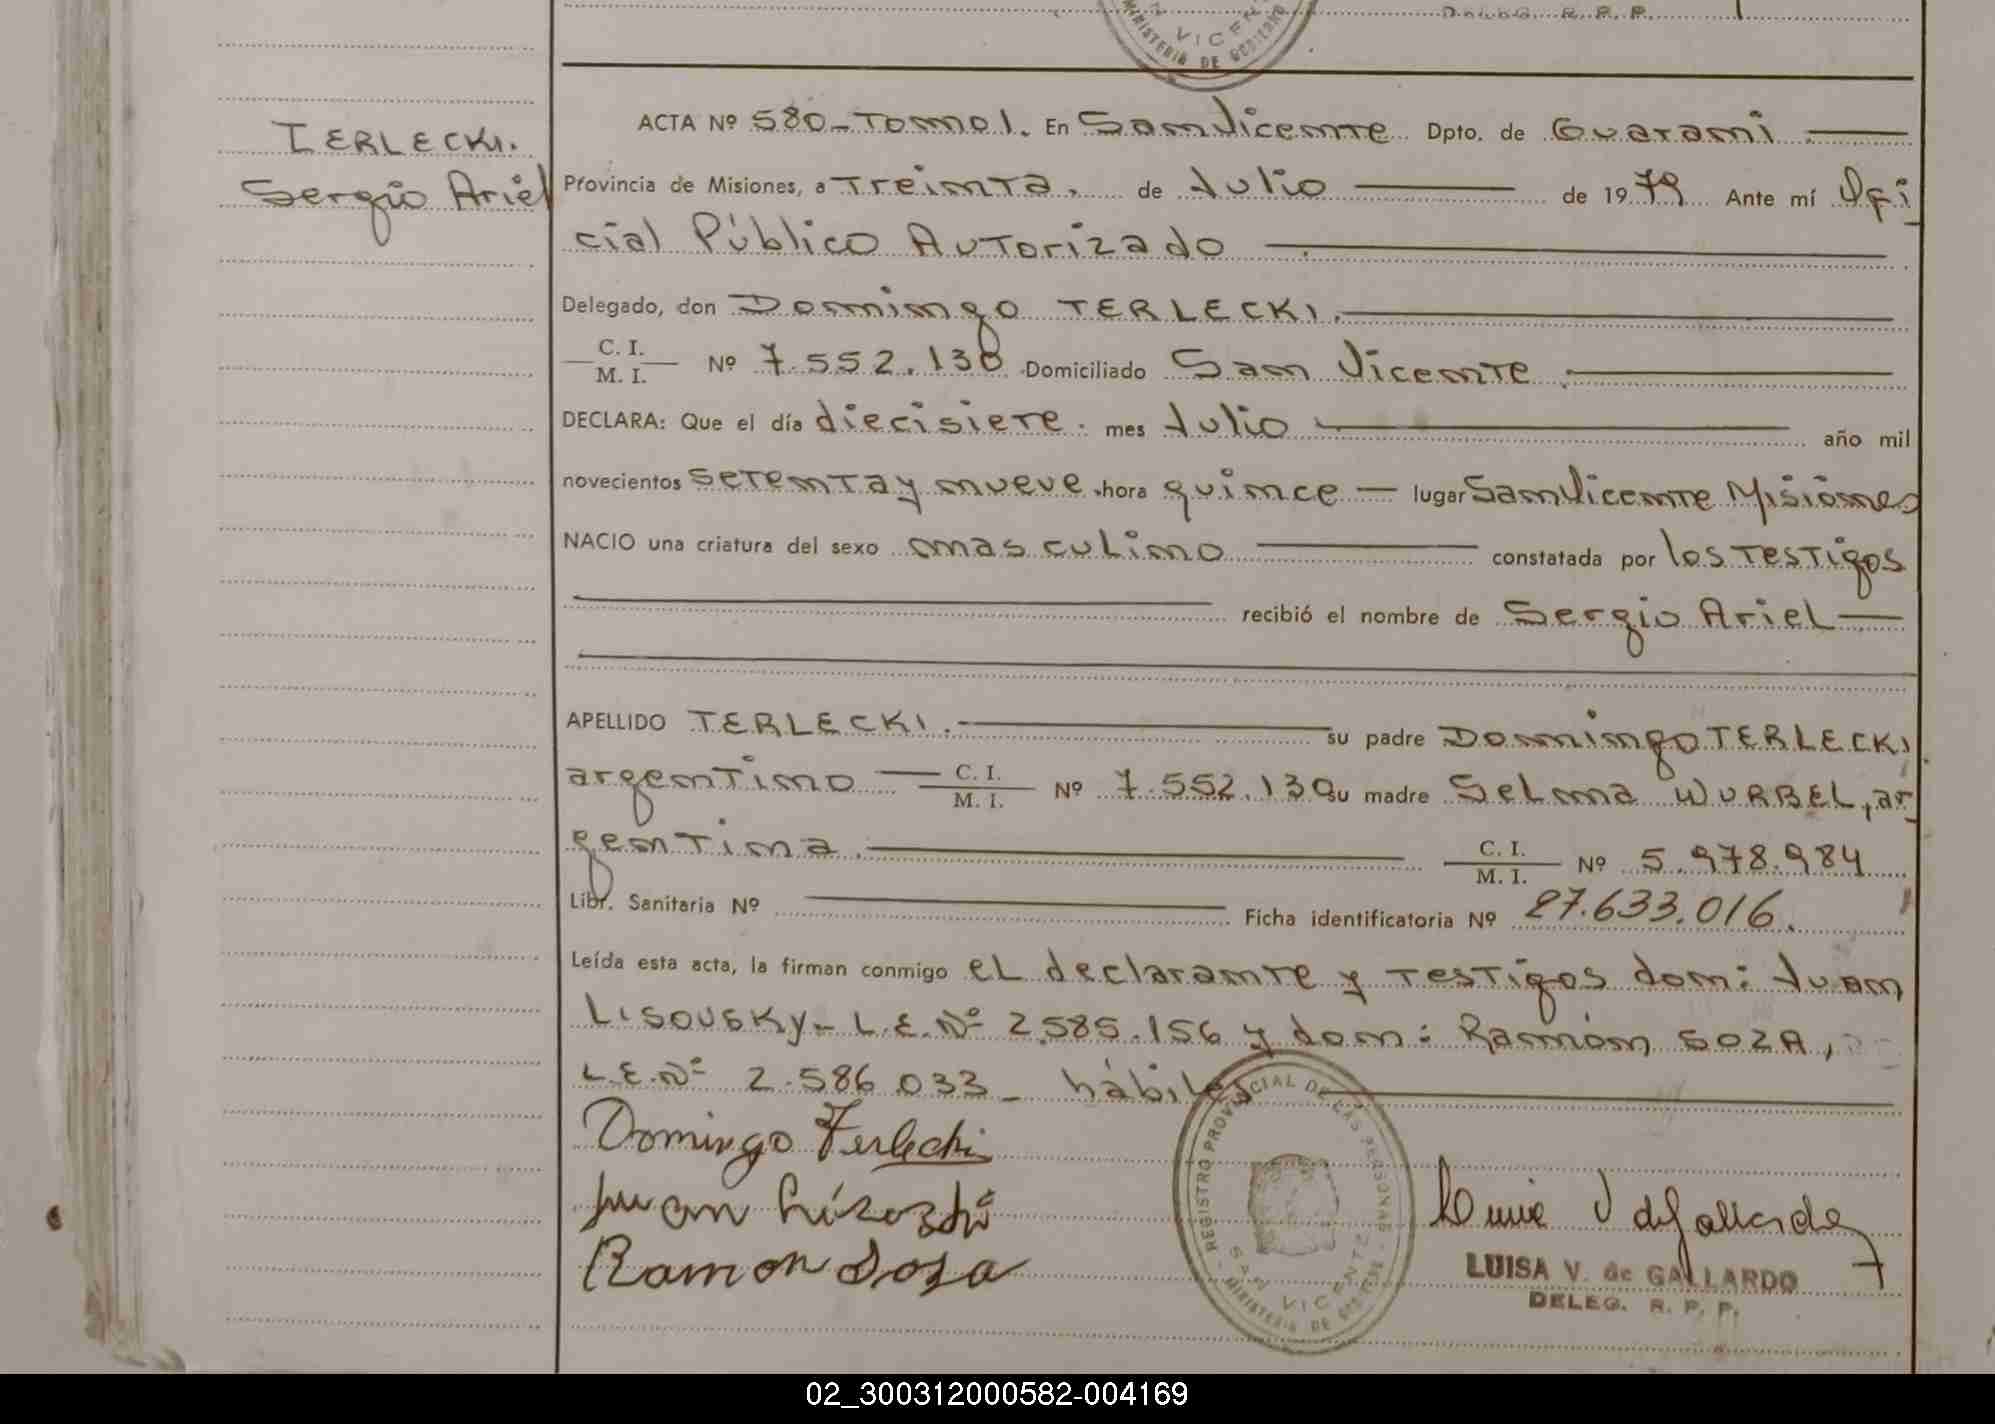 VICEN
MINISTERIO DE GOBIERNO
DELEG. R. P. P.
TERLECKI.
Sergio Ariel
ACTA Nº 580-Tomo 1. En San Vicente Dpto. de Guaraní.
Provincia de Misiones, a Treinta, de Julio de 1979 Ante mí Ofi
cial Público Autorizado
Delegado, don Domingo TERLECKI.
C. I.
M. I. Nº 7.552.130 Domiciliado San Vicente.
DECLARA: Que el día diecisiete. mes Julio año mil
novecientos setenta y nueve. hora quince lugar San Vicente Misiones
NACIO una criatura del sexo masculino constatada por los testigos
recibió el nombre de Sergio Ariel
APELLIDO TERLECKI. su padre Domingo TERLECKI
argentino C. I.
M. I. Nº 7.552.130 su madre Selma WURBEL, ar
gentina. C. I.
M. I. Nº 5.978.984
Libr. Sanitaria Nº Ficha identificatoria Nº 27.633.016.
Leída esta acta, la firman conmigo el declarante y testigos don: Juan
LISOVSKY- L.E.Nº 2.585.156 y don: Ramón SOZA,
L.E.Nº 2.586.033_ hábiles
Domingo Terlecki
Juan
Ramon Sosa
REGISTRO PROVINCIAL DE LAS PERSONAS
SAN VICENTE
MINISTERIO DE GOBIERNO
LUISA V. de GALLARDO
DELEG. R. P. P.
02_300312000582-004169